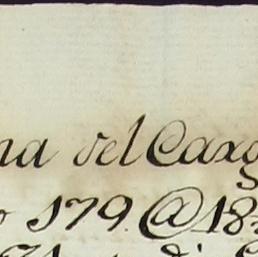 na del Carg
o 179 @ 18